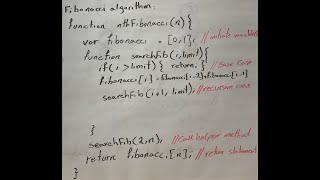 Fibonacci algorithm:
function nthFibonacci(n){
var fibonacci = [0,1]; // initials numbers
function searchFib(i,limit){
if(i>limit){ return; } // base case
fibonacci[i] = fibonacci[i-2]+fibonacci[i-1]
searchFib(i+1, limit); // recursion case
}
searchFib(2,n); // call helper method
return fibonacci[n]; // return statement
}